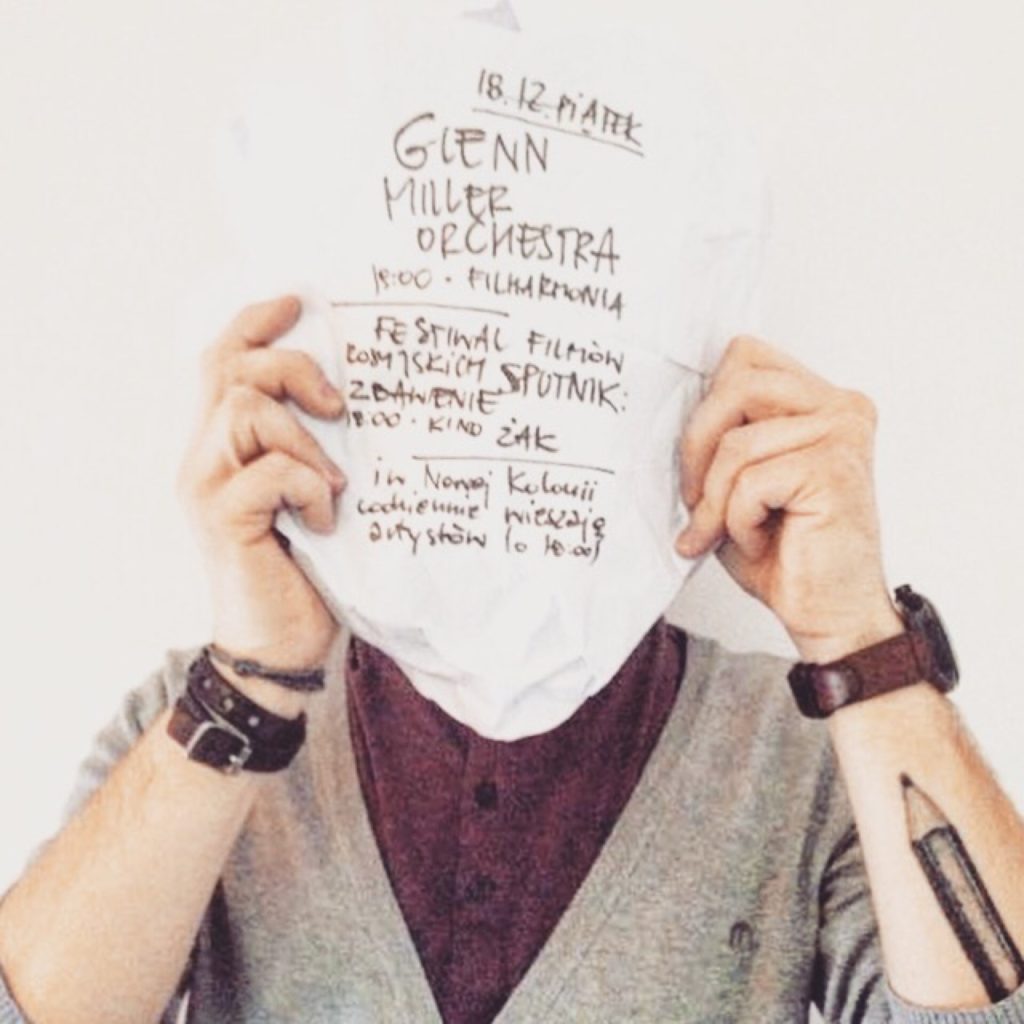 18.12. PIĄTEK
GLENN
MILLER
ORCHESTRA
18:00 · FILHARMONIA
FESTIWAL FILMÓW
ROSYJSKICH SPUTNIK:
ZBAWIENIE
18:00 · KINO ŻAK
in Nowej Kolonii
codziennie wieszają
artystów (o 18:00)